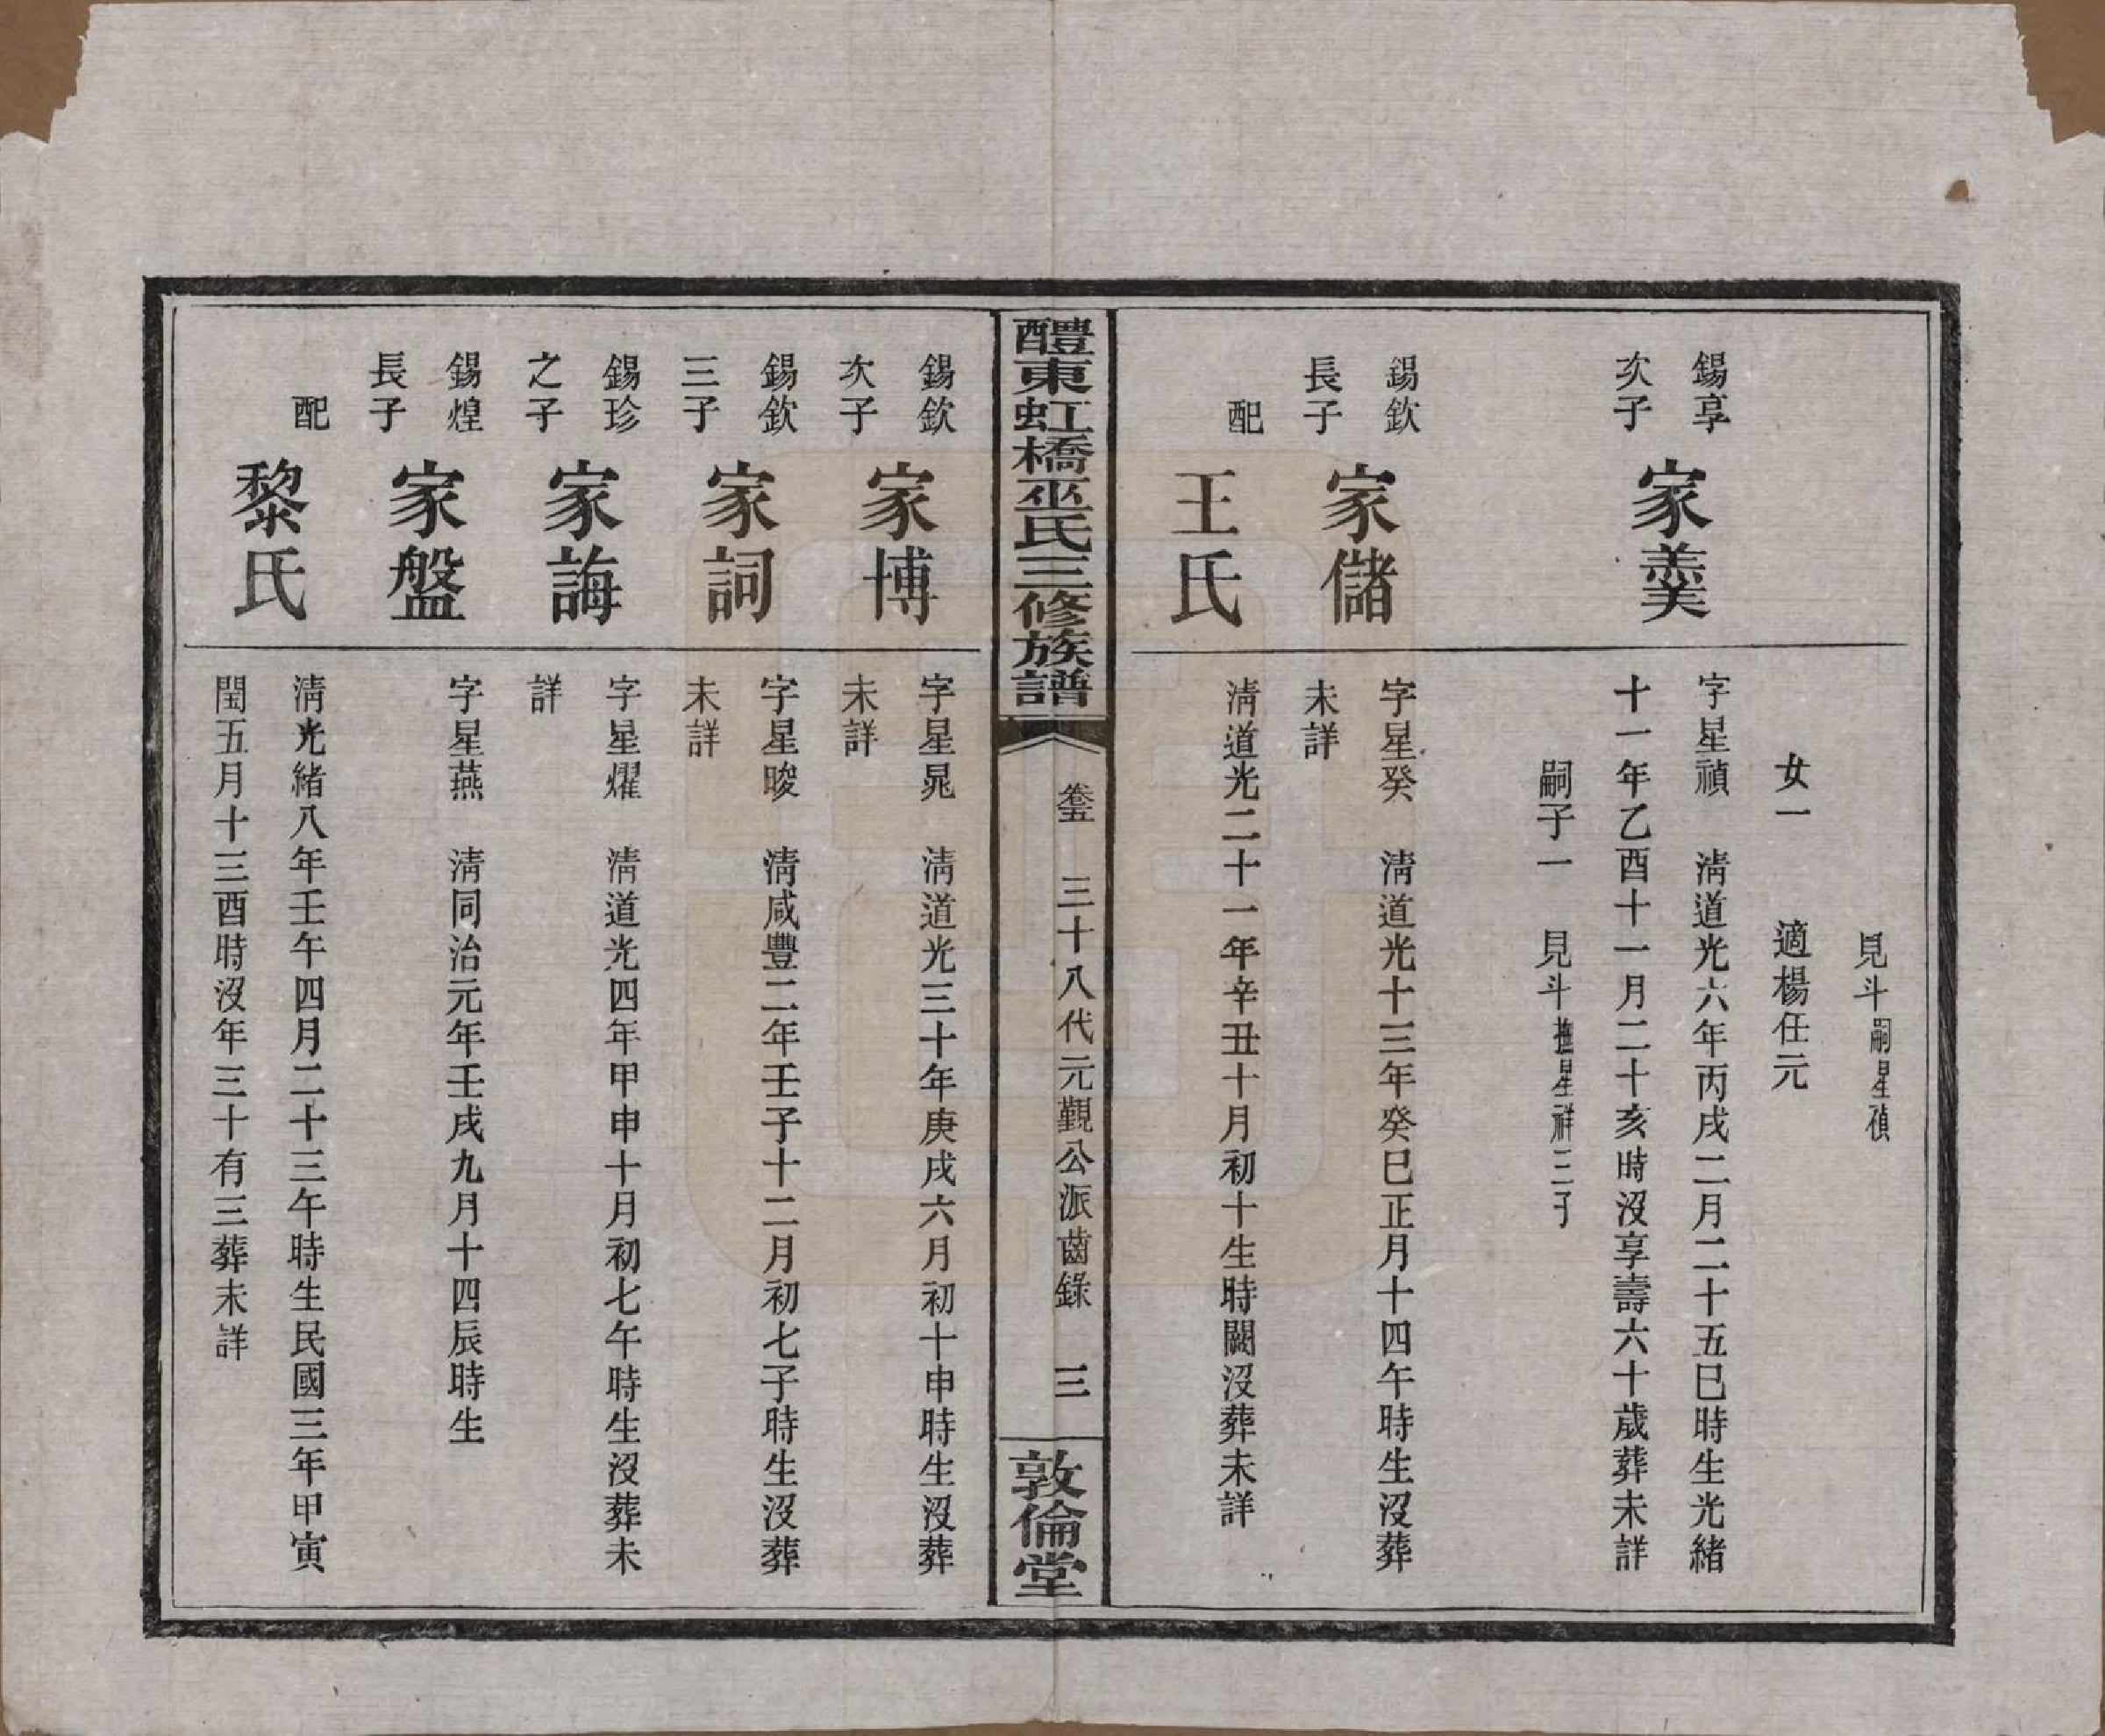 見斗嗣星禎
女一 適楊任元
錫享
次子
家羹
字星禎 淸道光六年丙戌二月二十五巳時生光緒
十一年乙酉十一月二十亥時沒享壽六十歲葬未詳
嗣子一 見斗撫星祥三子
錫欽
長子
家儲
字星癸 淸道光十三年癸巳正月十四午時生沒葬
未詳
配
王氏
淸道光二十一年辛丑十月初十生時闕沒葬未詳
醴東虹橋巫氏三修族譜
卷五 三十八代元觀公派齒錄 三
敦倫堂
錫欽
次子
家博
字星晃 淸道光三十年庚戌六月初十申時生沒葬
未詳
錫欽
三子
家詞
字星晙 淸咸豐二年壬子十二月初七子時生沒葬
未詳
錫珍
之子
家誨
字星燿 淸道光四年甲申十月初七午時生沒葬未
詳
錫煌
長子
家盤
字星燕 淸同治元年壬戌九月十四辰時生
配
黎氏
淸光緒八年壬午四月二十三午時生民國三年甲寅
閏五月十三酉時沒年三十有三葬未詳